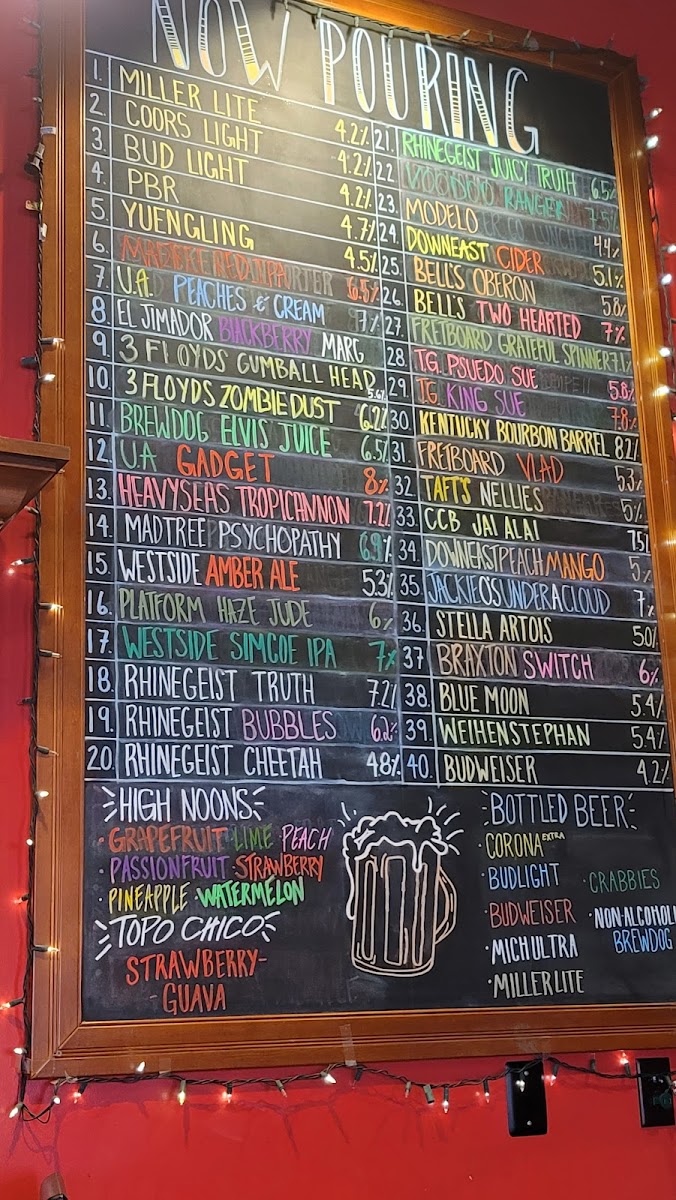 NOW POURING
1. MILLER LITE 4.2%
2. COORS LIGHT 4.2%
3. BUD LIGHT 4.2%
4. PBR 4.7%
5. YUENGLING 4.5%
6. 6.5%
7. U.A. PEACHES & CREAM 7%
8. EL JIMADOR BLACKBERRY MARG
9. 3 FLOYDS GUMBALL HEAD 5.6%
10. 3 FLOYDS ZOMBIE DUST 6.2%
11. BREWDOG ELVIS JUICE 6.5%
12. U.A GADGET 8%
13. HEAVYSEAS TROPICANNON 7.2%
14. MADTREE PSYCHOPATHY 6.9%
15. WESTSIDE AMBER ALE 5.3%
16. PLATFORM HAZE JUDE 6%
17. WESTSIDE SIMCOE IPA 7%
18. RHINEGEIST TRUTH 7.2%
19. RHINEGEIST BUBBLES 6.2%
20. RHINEGEIST CHEETAH 4.8%
21. RHINEGEIST JUICY TRUTH 6.5%
22. VOODOO RANGER 7.5%
23. MODELO 4.4%
24. DOWNEAST CIDER 5.1%
25. BELL'S OBERON 5.8%
26. BELL'S TWO HEARTED 7%
27. FRETBOARD GRATEFUL SPINNER 7.1%
28. T.G. PSUEDO SUE 5.8%
29. T.G. KING SUE 7.8%
30. KENTUCKY BOURBON BARREL 8.2%
31. FRETBOARD VLAD 5.3%
32. TAFT'S NELLIES 5%
33. CCB JAI ALAI 7.5%
34. DOWNEAST PEACH MANGO 5%
35. JACKIE O'S UNDER A CLOUD 7%
36. STELLA ARTOIS 5.0%
37. BRAXTON SWITCH 6%
38. BLUE MOON 5.4%
39. WEIHENSTEPHAN 5.4%
40. BUDWEISER 4.2%
HIGH NOONS
· GRAPEFRUIT · LIME · PEACH
· PASSIONFRUIT · STRAWBERRY
· PINEAPPLE · WATERMELON
TOPO CHICO
STRAWBERRY-
-GUAVA
BOTTLED BEER
· CORONA EXTRA
· BUDLIGHT
· BUDWEISER
· MICH ULTRA
· MILLER LITE
· CRABBIES
· NON-ALCOHOLI
BREWDOG